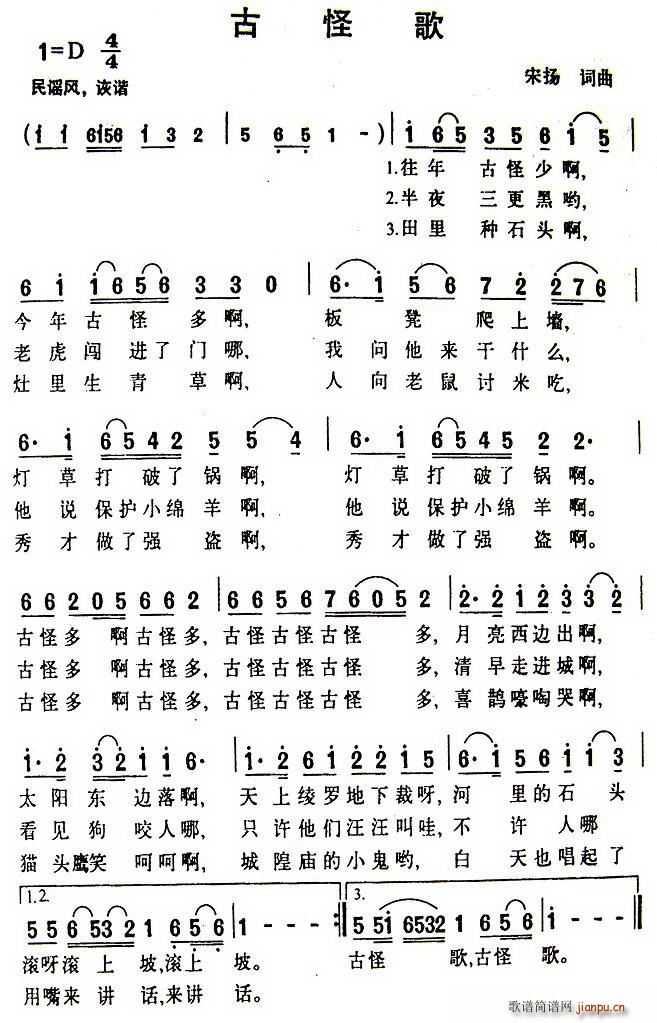 古怪歌
1=D 4/4
宋扬 词曲
民谣风，诙谐
(i i 6i56 i 3 2 | 5 6 5 1 -) | i 6 5 3 5 6 i 5
1.往年 古怪少啊，
2.半夜 三更黑哟，
3.田里 种石头啊，
6 i i 6 5 6 3 3 0 | 6· i 5 6 7 2 2 7 6
今年古怪多啊， 板凳爬上墙，
老虎闯进了门哪， 我问他来干什么，
灶里生青草啊， 人向老鼠讨米吃，
6· i 6 5 4 2 5 5 4 | 6· i 6 5 4 5 2 2·
灯草打破了锅啊， 灯草打破了锅啊。
他说保护小绵羊啊， 他说保护小绵羊啊。
秀才做了强盗啊， 秀才做了强盗啊。
6 6 2 0 5 6 6 2 | 6 6 5 6 7 6 0 5 2 | 2· 2 i 2 3 3 2
古怪多 啊古怪多，古怪古怪古怪 多，月亮西边出啊，
古怪多 啊古怪多，古怪古怪古怪 多，清早走进城啊，
古怪多 啊古怪多，古怪古怪古怪 多，喜鹊嚎啕哭啊，
i· 2 3 2 i i 6· | i· 2 6 i 2 2 i 5 | 6· i 5 6 i i 3
太阳东边落啊， 天上绫罗地下裁呀，河里的石头
看见狗咬人哪， 只许他们汪汪叫哇，不许人哪
猫头鹰笑呵呵啊， 城隍庙的小鬼哟，白天也唱起了
1.2. 3.
5 5 6 5 3 2 1 6 5 6 | 1 - - - :‖ 5 5 i 6 5 3 2 1 6 5 6 | 1 - - -
滚呀滚上坡，滚上坡。 古怪歌，古怪歌。
用嘴来讲话，来讲话。
歌谱简谱网
jianpu.cn